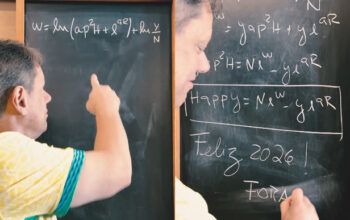 w = ln(ap²H + e^aR) + ln y/N
= yap²H + ye^aR
p²H = Ne^w - ye^aR
Happy = Ne^w - ye^aR
Feliz 2026!
FORA